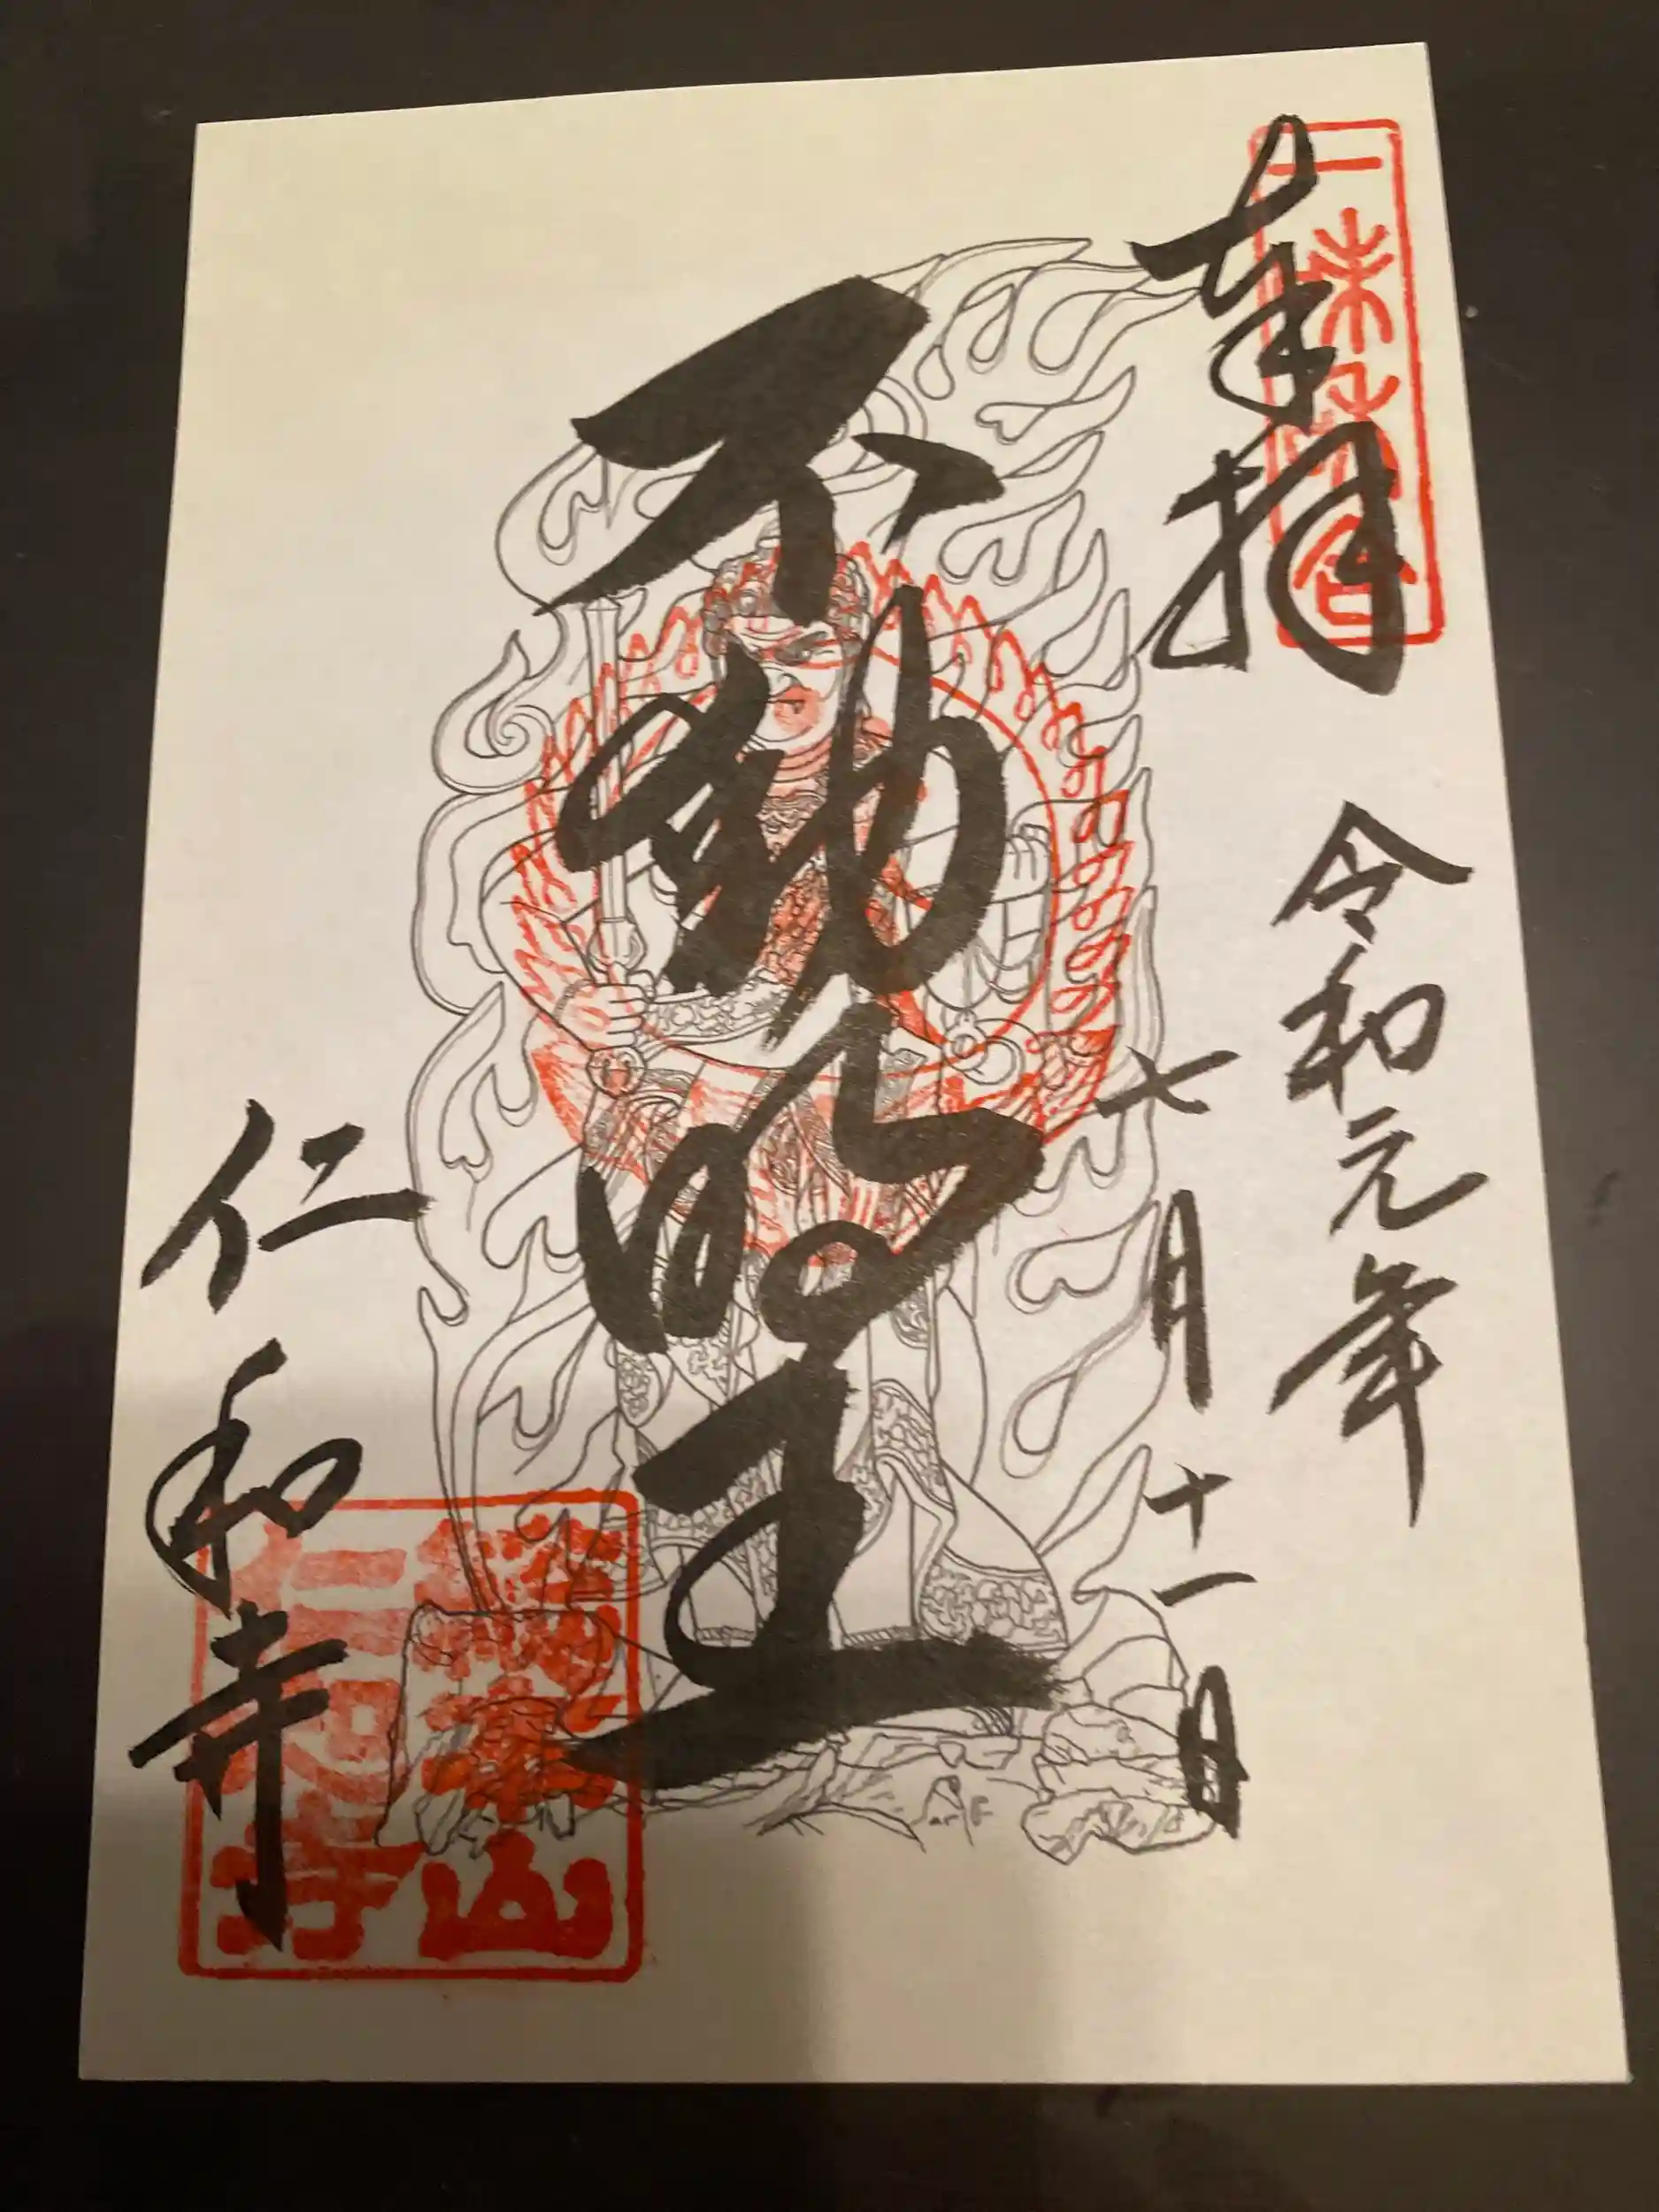 奉拝
令和元年
七月十一日
不動明王
仁和寺
仁和寺